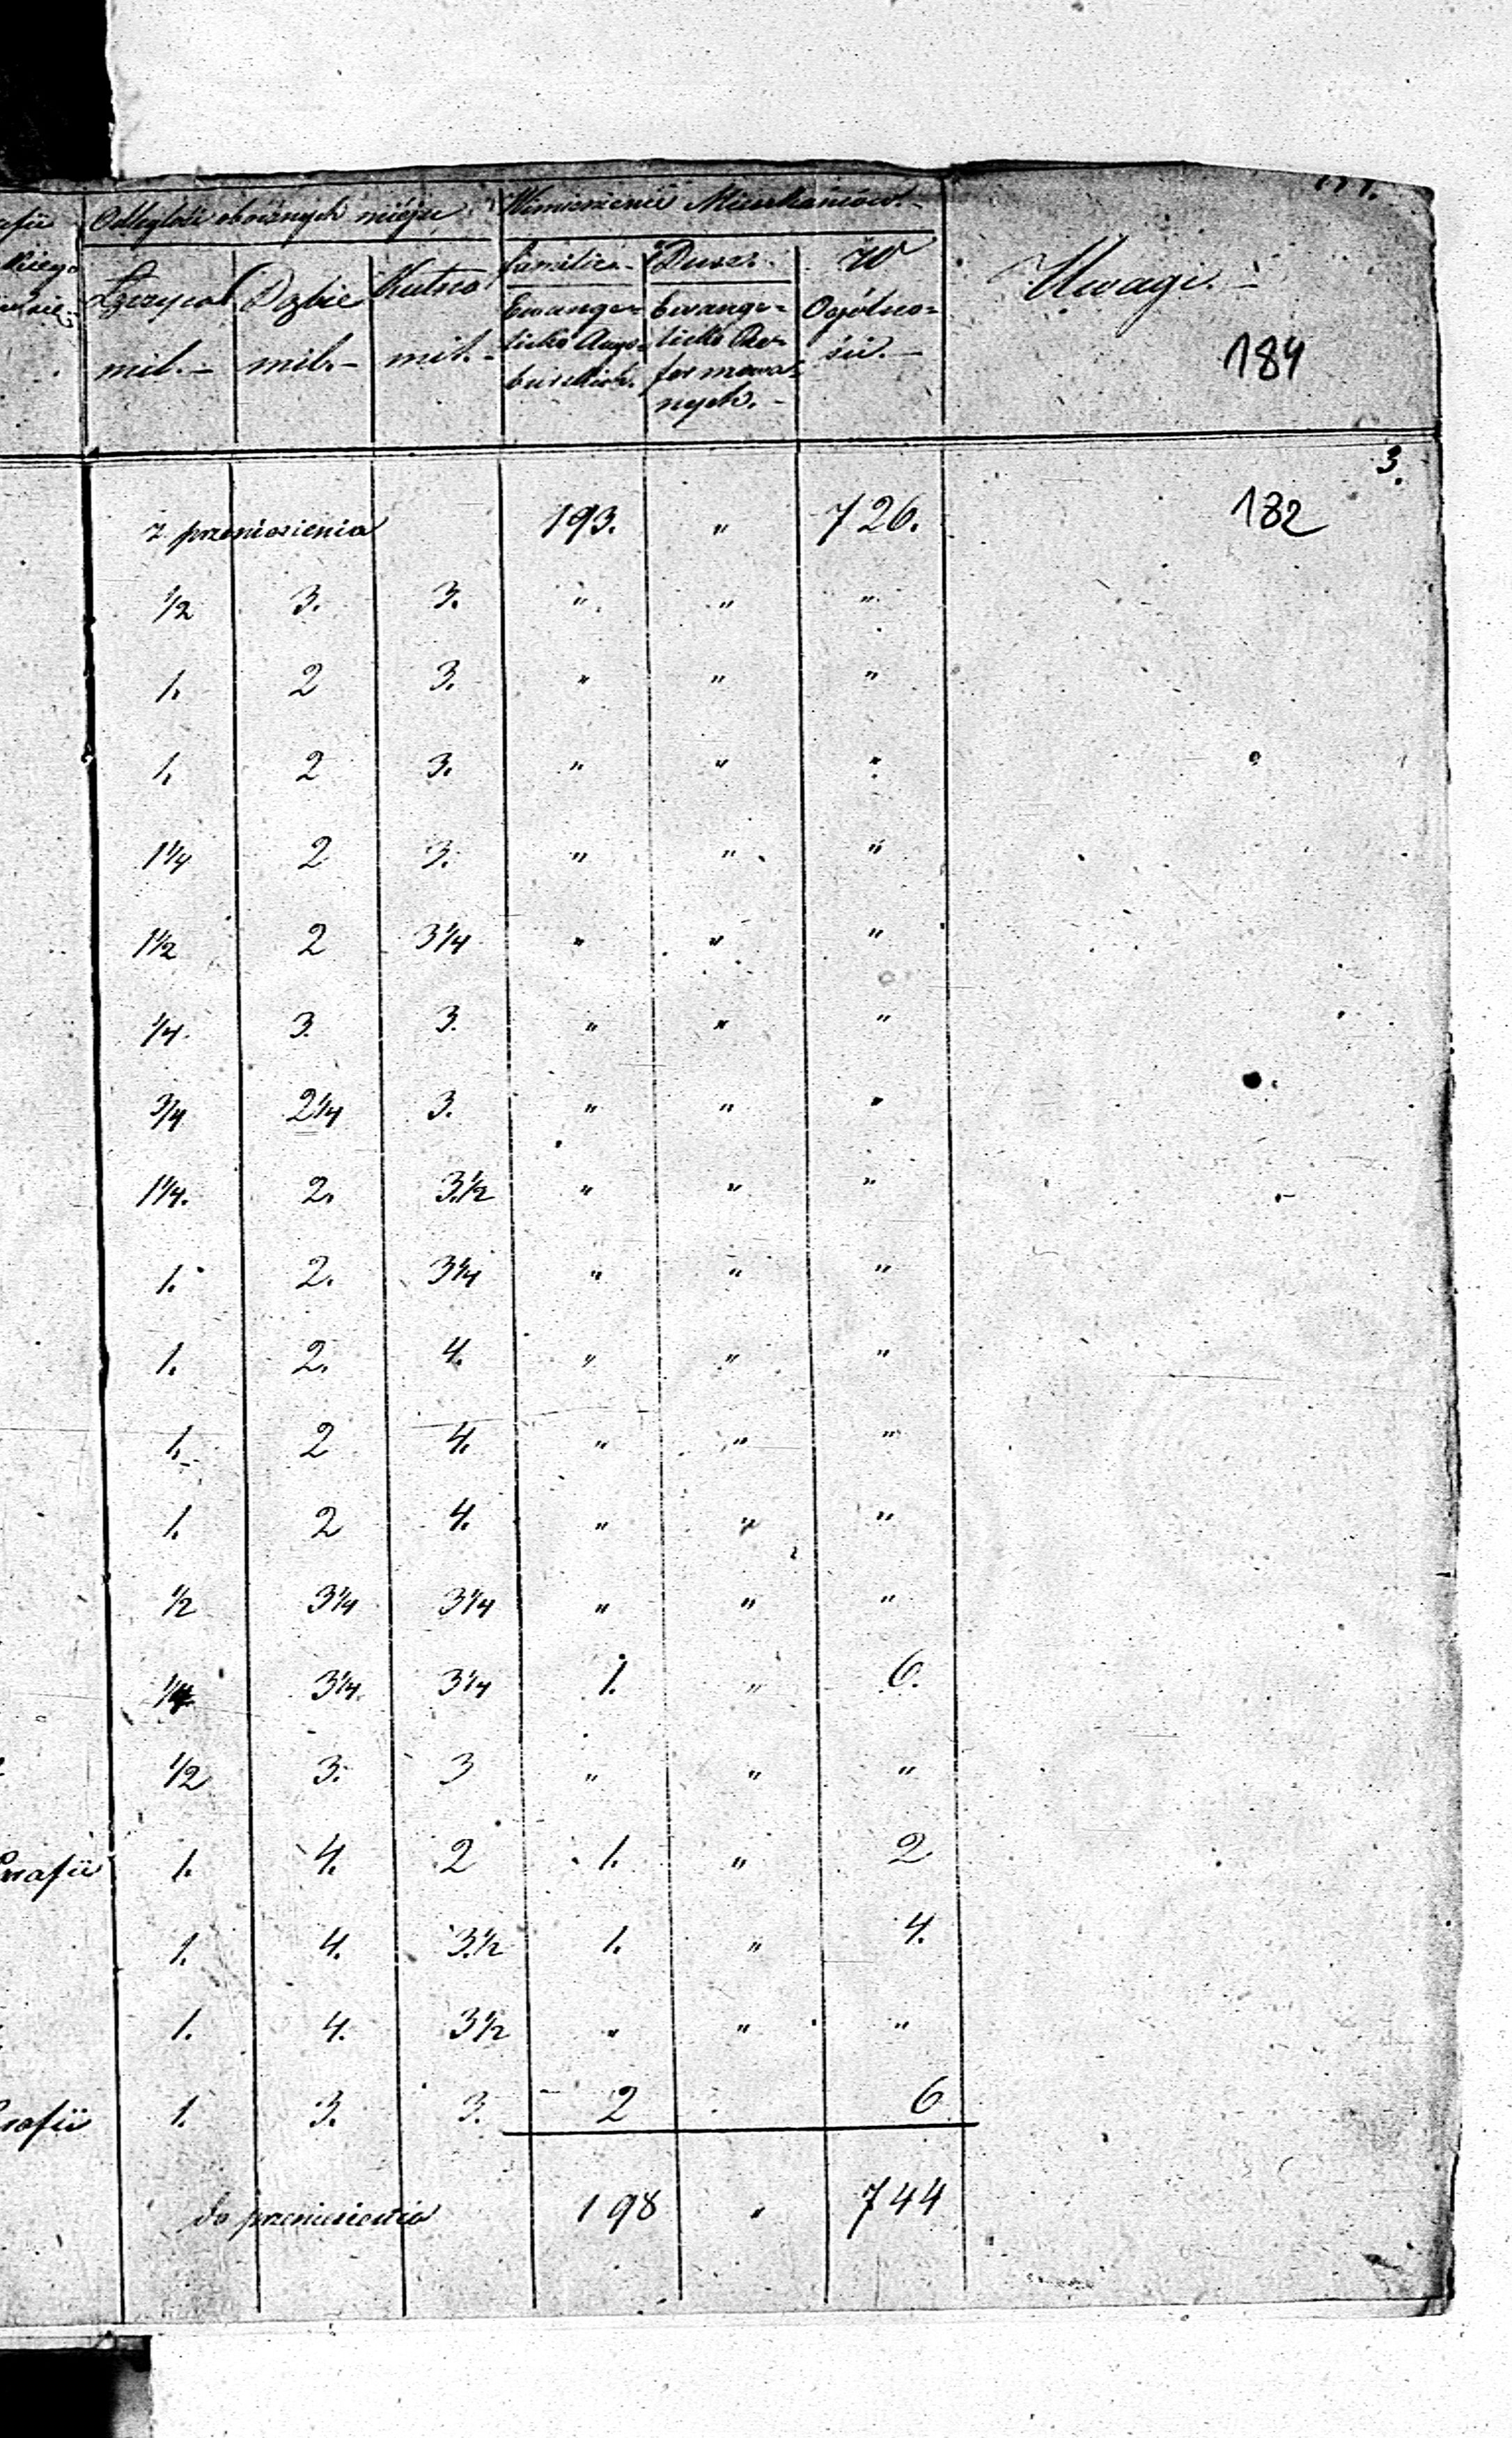 Odległość obcianych mieysc Wymienienie Mieszkańców.
Łęczyca Dąbie Kutno Familie.- Dusze.- W Uwagi.-
mil.- mil.- mil.- Ewange= Ewange= Ogólno=
licko Augs= licko Re= ści.-
burskich. formowa=
nych.-
184
3.
z przeniesienia 193. " 726. 182
1/2 3. 3. " " "
1. 2 3. " " "
1. 2 3. " " "
1 1/4 2 3. " " "
1 1/2 2 3 1/4 " " "
1/4. 3. 3. " " "
3/4 2 1/4 3. " " "
1 1/4. 2. 3. 1/2 " " "
1. 2. 3 1/4 " " "
1. 2. 4. " " "
1. 2 4. " " "
1. 2 4. " " "
1/2 3 1/4 3 1/4 " " "
1/4 3 1/4. 3 1/4 1. " 6.
1/2 3. 3 " " "
Parafii 1. 4. 2 1. " 2
1. 4. 3. 1/2 1. " 4.
1. 4. 3 1/2 " " "
1. 3. 3. 2 6
do przeniesienia 198 " 744